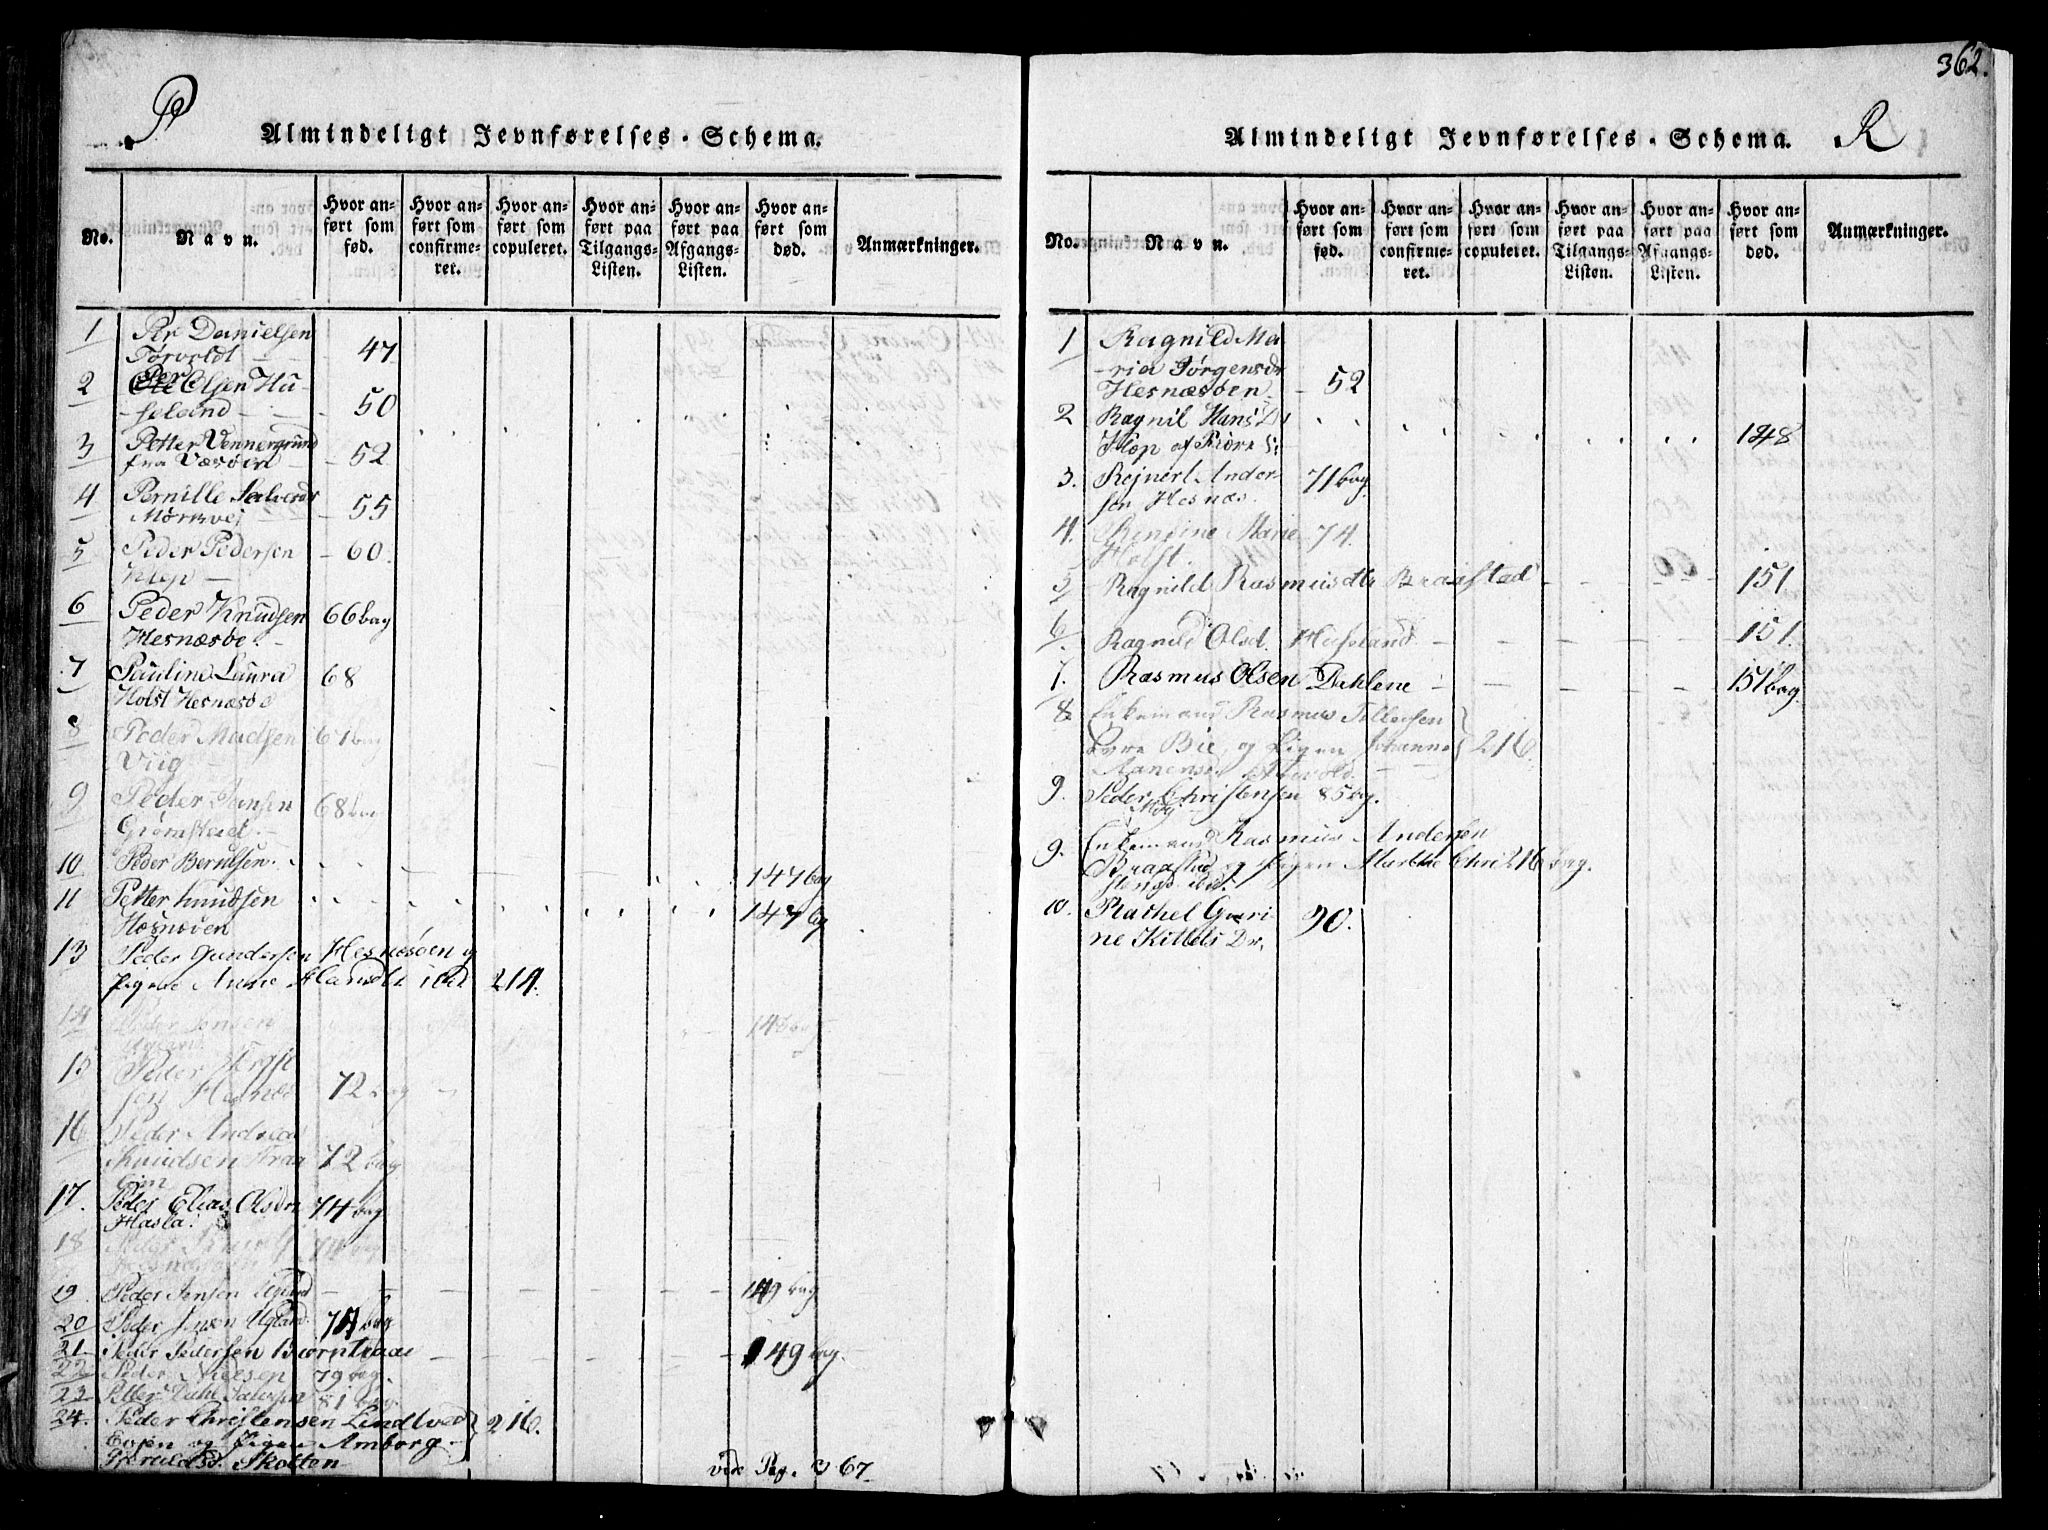 P
Almindeligt Jevnførelses-Schema.
No.
Navn.
Hvor anført som fød.
Hvor anført som confirmeret.
Hvor anført som copuleret.
Hvor anført paa Tilgangs-Listen.
Hvor anført paa Afgangs-Listen.
Hvor anført som død.
Anmærkninger.
1 Per Danielsen
Törvoldt 47
2 Per Olsen Hu-
seland 50
3 Petter Vennergrund
fra Væsøen 52
4 Pernille Salvesdr
Mørkvej 55
5 Peder Pedersen 60.
Klep
6 Peder Knudsen 66 bag
Hesnæsøe.
7 Pauline Laura 68
Holst Hesnæsøe
8 Peder Madsen 67 bag
Viig
9 Peder Jansen 68 bag
Grømstad.
10 Peder Berntsen. 147 bag
11 Petter Knudsen
Hesnæsøen 147 bag
13 Peder Gundersen Hesnæsøen og
Pigen Anne Hansdtr ibid 214.
14 Peder Jensen 148 bag
Ugland
15 Peder Terje-
sen Hesnæs 72 bag
16 Peder Andreas
Knudsen Traa 72 bag
17. Peder Elias Olsen 74 bag
Hasla.
18 Peder 74 bag
Hesnæsøen
19. Peder Jensen Ugland 149 bag
20 Peder Jensen Ugland. 74 bag
21. Peder Pedersen Biørntraae 149 bag.
22 Peder Nielsen 79 bag.
23 Petter Dahl 81 bag.
24. Peder Christensen Lindtved 216.
og Pigen Amborg
Skolten
vide Pag. 367.
362.
Almindeligt Jevnførelses-Schema. R
No.
Navn.
Hvor anført som fød.
Hvor anført som confirmeret.
Hvor anført som copuleret.
Hvor anført paa Tilgangs-Listen.
Hvor anført paa Afgangs-Listen.
Hvor anført som død.
Anmærkninger.
1 Ragnild Ma-
ria Jørgensdr
Hesnæsøen 52
2 Ragnil Hans Dr
Klep af Fiære S: 148
3. Rejnert Ander- 71 bag.
sen Hesnæs.
4. Rensine Marie 74.
Holst.
5 Ragnild Rasmusdtr Braastad 151
6. Ragnild Olsd. Huseland 151.
7. Rasmus Olsen Dahlene 151 bag.
8 Enkemand Rasmus Tellefsen
Bie, og Pigen Johanne 216.
Aanensd.
9. Peder Christensen 85 bag.
Moy
9. Enkemand Rasmus Andersen
Braastad og Pigen Marthe Chri 216 bag.
stensd. ibid.
10. Rachel Guri- 90.
ne Kittels Dr.